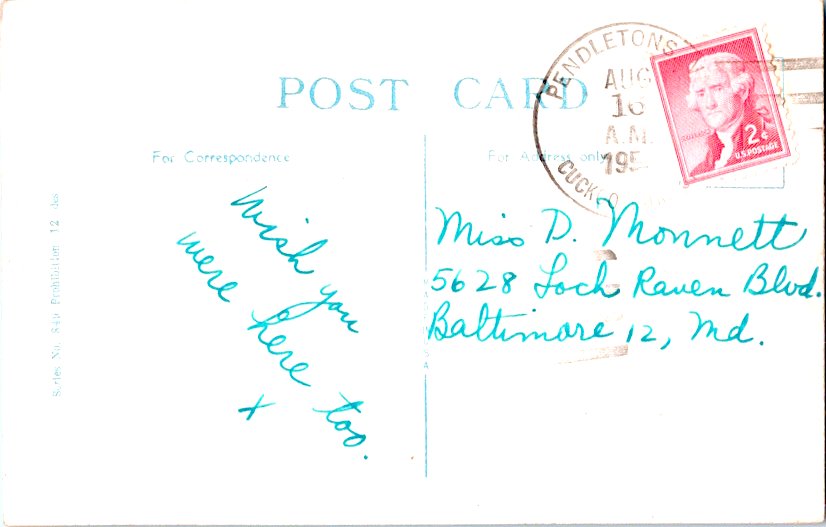 POST CARD
For Correspondence
For Address only
PENDLETONS
AUG
16
A.M.
195
CUCK
2¢
U.S. POSTAGE
Wish you
were here too.
x
Miss D. Monnett
5628 Loch Raven Blvd.
Baltimore 12, Md.
Series No. Prohibition 12